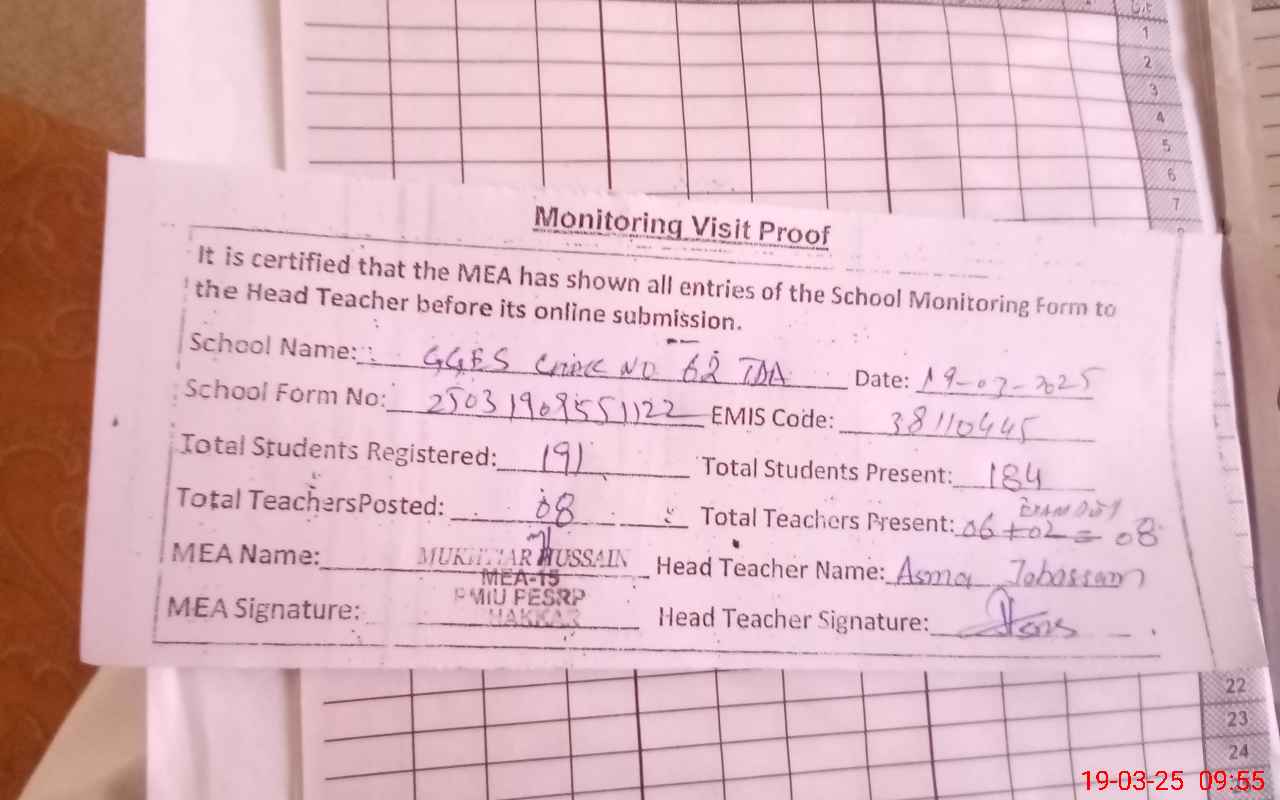 1
2
3
4
5
6
7
Monitoring Visit Proof
It is certified that the MEA has shown all entries of the School Monitoring Form to
the Head Teacher before its online submission.
School Name: GGES Chak No 62 TDA Date: 19-03-2025
School Form No: EMIS Code: 38110445
Total Students Registered: 191 Total Students Present: 184
Total TeachersPosted: 08 Total Teachers Present: 06+02=08
Exam Duty
MEA Name: MUKHTIAR HUSSAIN Head Teacher Name: Asma
MEA-15
PMIU PESRP
MEA Signature: Head Teacher Signature:
22
23
24
19-03-25 09:55